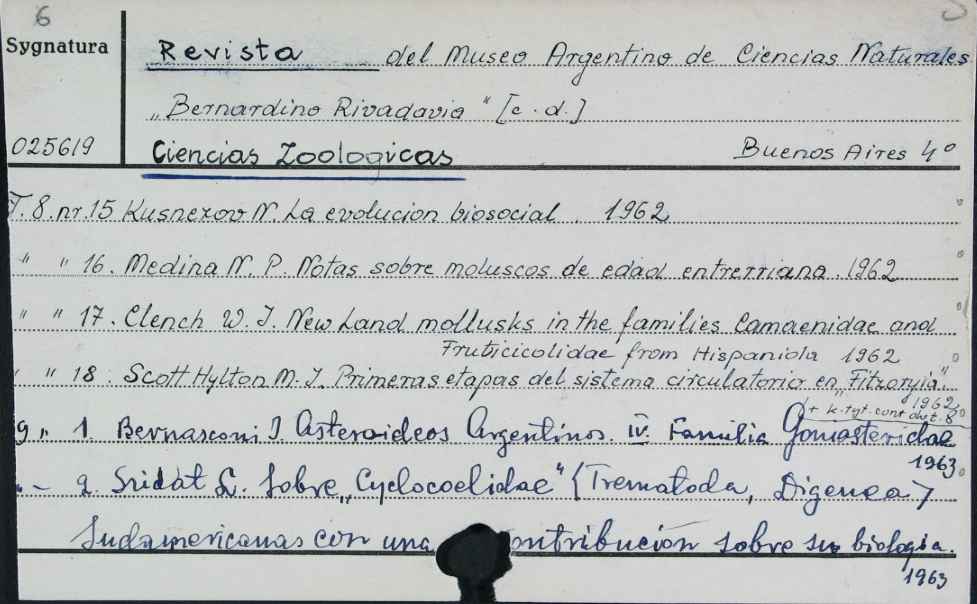 6
Sygnatura
Revista del Museo Argentino de Ciencias Naturales
„Bernardino Rivadavia" [c.d.]
025619
Ciencias Zoologicas Buenos Aires 4°
T. 8. nr. 15 Kusnezov N. La evolucion biosocial. 1962
" " 16. Medina N. P. Notas sobre moluscos de edad entrerriana. 1962
" " 17. Clench W. J. New Land mollusks in the families Camaenidae and
Fruticicolidae from Hispaniola 1962
" " 18. Scott Hylton M. J. Primeras etapas del sistema circulatorio en „Fitzroyia".
1962
+ k. tyt. cont.
9 „ 1. Bernasconi I. Asteroideos Argentinos. IV. Familia Goniasteridae
1963
„ – 2. Sridat L. Sobre „Cyclocoelidae" (Trematoda, Digenea)
Sudamericanas con una contribución sobre su biologia.
1963